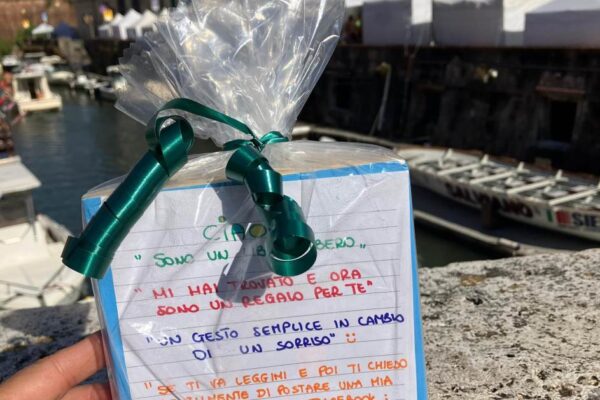 CIAO
"SONO UN LIBERO"
"MI HAI TROVATO E ORA
SONO UN REGALO PER TE"
"UN GESTO SEMPLICE IN CAMBIO
DI UN SORRISO"
"SE TI VA LEGGIMI E POI TI CHIEDO
DI POSTARE UNA MIA